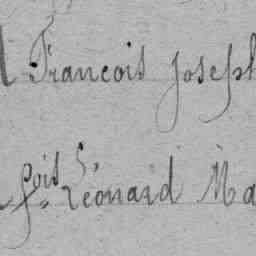 François Joseph
fois 5,
Léonard Ma